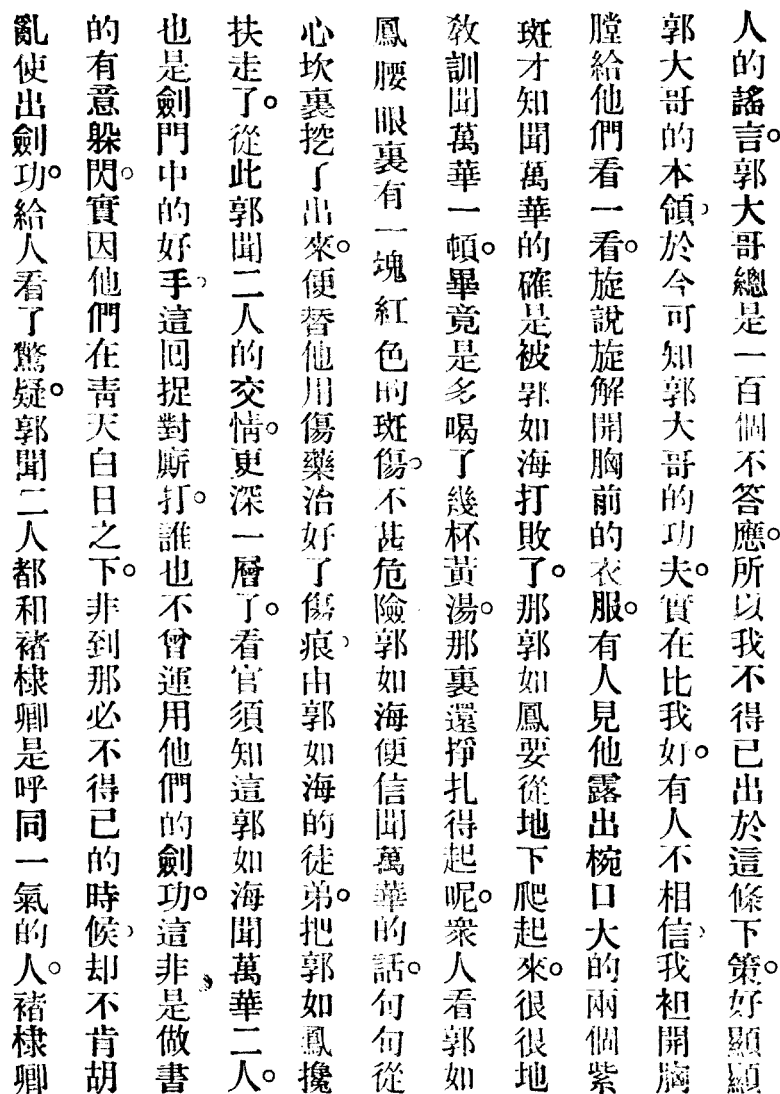 人的謠言。郭大哥總是一百個不答應。所以我不得已出於這條下策。好顯顯
郭大哥的本領，於今可知郭大哥的功夫。實在比我好。有人不相信，我袒開胸
膛給他們看一看。旋說旋解開胸前的衣服。有人見他露出椀口大的兩個紫
斑才知聞萬華的確是被郭如海打敗了。那郭如鳳要從地下爬起來。很很地
敎訓聞萬華一頓。畢竟是多喝了幾杯黃湯。那裏還掙扎得起呢。衆人看郭如
鳳腰眼裏有一塊紅色的斑傷，不甚危險郭如海便信聞萬華的話。句句從
心坎裏挖了出來。便替他用傷藥治好了傷痕，由郭如海的徒弟。把郭如鳳攙
扶走了。從此郭聞二人的交情。更深一層了。看官須知這郭如海聞萬華二人。
也是劍門中的好手，這回捉對廝打。誰也不曾運用他們的劍功。這非是做書
的有意躲閃。實因他們在靑天白日之下。非到那必不得已的時候，却不肯胡
亂使出劍功。給人看了驚疑。郭聞二人都和褚棣卿是呼同一氣的人。褚棣卿